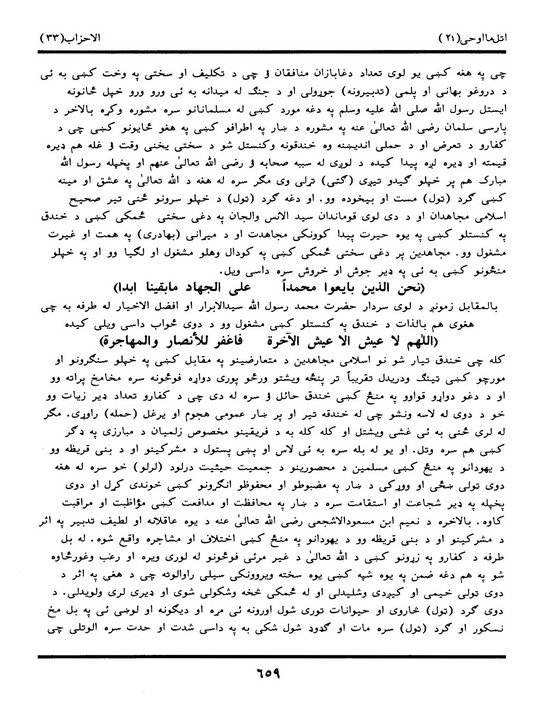 اتل ما اوحی (٢١) الاحزاب (٣٣)
چي په هغه کښي يو لوی تعداد دغابازان منافقان ؤ چي د تکليف او سختی په وخت کښي به ئی
د دروغو بهانی او پلمی (تدبيرونه) جوړولی او د جنګ له ميدانه به ئی ورو ورو خپل ځانونه
ايستل رسول الله صلی الله عليه وسلم په دغه مورد کښي له مسلمانانو سره مشوره وکړه بالاخر د
پارسی سلمان رضی الله تعالیٰ عنه په مشوره د ښار په اطرافو کښي په هغو ځايونو کښي چی د
کفارو د تعرض او د حملی انديښنه وه خندقونه وکنستل شو د سختی يخنی وقت ؤ غله هم ډيره
قيمته او ډيره لږه پيدا کيده د لوږی له سببه صحابه ؤ رضی الله تعالیٰ عنهم او پخپله رسول الله
مبارک هم پر خپلو ګيډو تيږی (ګتی) تړلی وی مګر سره له هغه د الله تعالیٰ په عشق او مينه
کښي ګرد (تول) مست او بيخوده وو. او دغه ګرد (تول) د خپلو سرونو څنی تير صحيح
اسلامی مجاهدان او د دی لوی قوماندان سيد الانس والجان په دغی سختی ځمکی کښي د خندق
په کنستلو کښي په يوه حيرت پيدا کوونکی مجاهدت او د ميړانی (بهادری) په همت او غيرت
مشغول وو. مجاهدين پر دغی سختی ځمکی کښي په کودال وهلو مشغول او لګيا وو او په خپلو
منځونو کښي به ئی په ډير جوش او خروش سره داسی ويل.
(نحن الذين بايعوا محمداً على الجهاد مابقينا ابدا)
بالمقابل زمونږ د لوی سردار حضرت محمد رسول الله سيدالابرار او افضل الاخيار له طرفه به چي
هغوی هم بالذات د خندق په کنستلو کښي مشغول وو د دوی ځواب داسی ويلی کيده
(اللهم لا عيش الا عيش الآخرة فاغفر للأنصار والمهاجرة)
کله چي خندق تيار شو نو اسلامی مجاهدين د متعارضينو په مقابل کښي په خپلو سنګرونو او
مورچو کښي تينګ ودريدل تقريباً تر پنځه ويشتو ورځو پوری دواړه فوځونه سره مخامخ پراته وو
او د دغو دواړو قواوو په منځ کښي خندق حائل ؤ سره له دی چي د کفارو تعداد ډير زيات وو
خو د دوی له لاسه ونشو چي له خندقه تير او پر ښار عمومی هجوم او يرغل (حمله) راوړی. مګر
له لری څنی به ئی غشی ويشتل او کله کله به د فريقينو مخصوص زلميان د مبارزی په ډګر
کښي هم سره وتل. او يو له بله سره به ئی لاس او پښي پستول د مشرکينو او د بنی قريظه وو
د يهودانو په منځ کښي مسلمين د محصورينو د جمعيت حيثيت درلود (لرلو) خو سره له هغه
دوی تولی ښځی او ووړکی د ښار په مضبوطو او محفوظو انګړونو کښي خوندی کړل او دوی
پخپله په ډير شجاعت او استقامت سره د ښار په محافظت او مدافعت کښي مؤاظبت او مراقبت
کاوه. بالاخره د نعيم ابن مسعودالاشجعی رضی الله تعالیٰ عنه د يوه عاقلانه او لطيف تدبير په اثر
د مشرکينو او د بنی قريظه وو د يهودانو په منځ کښي اختلاف او مشاجره واقع شوه. له بل
طرفه د کفارو په زړونو کښي د الله تعالیٰ د غير مرئی فوځونو له لوری ويره او رعب وغورځاوه
شو په هم دغه ضمن په يوه شپه کښي يوه سخته ويروونکی سيلی راوالوته چي د هغی په اثر د
دوی تولی خيمی او کيږدی وشليدلی او له ځمکی څخه وشکولی شوی او ډيری لری ولويدلی. د
دوی ګرد (تول) څاروی او حيوانات توری شول اورونه ئی مړه او ديګونه او لوښی ئی په بل مخ
نسکور او ګرد (تول) سره مات او ګډوډ شول شکی به په داسی شدت او حدت سره الوتلی چي
٦٥٩